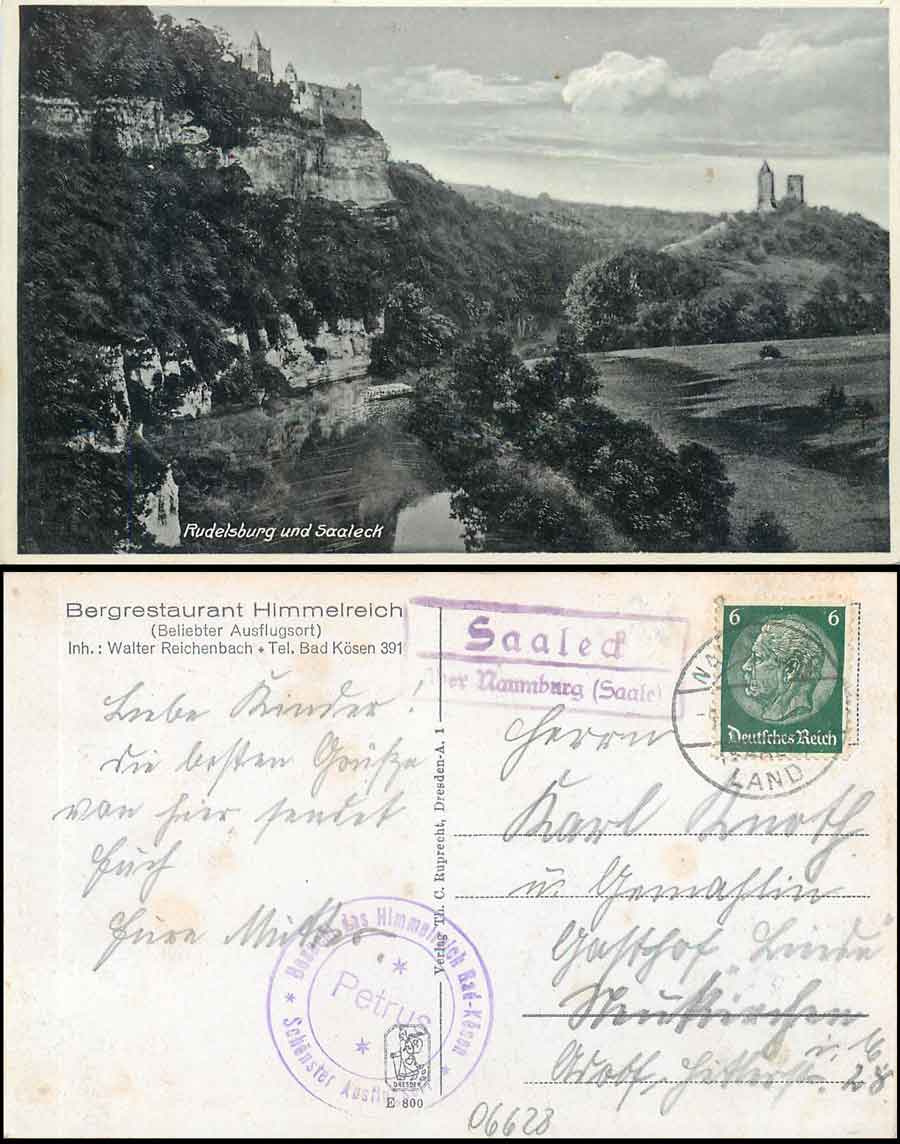 Rudelsburg und Saaleck
Bergrestaurant Himmelreich
(Beliebter Ausflugsort)
Inh.: Walter Reichenbach • Tel. Bad Kösen 391
Saaleck
über Naumburg (Saale)
6 6
Deutsches Reich
LAND
Liebe Kinder!
Die besten Grüße
von hier sendet
Euch
Eure Mutter
Verlag Th. C. Ruprecht, Dresden-A. 1
Herrn
Karl Knoth
u. Gemahlin
Gasthof „Linde“
Neukirchen
Adolf Hitlerstr. 28
das Himmelreich Bad-Kösen
Petrus
Schönster Ausflugsort
DRESDEN
E 800
06628